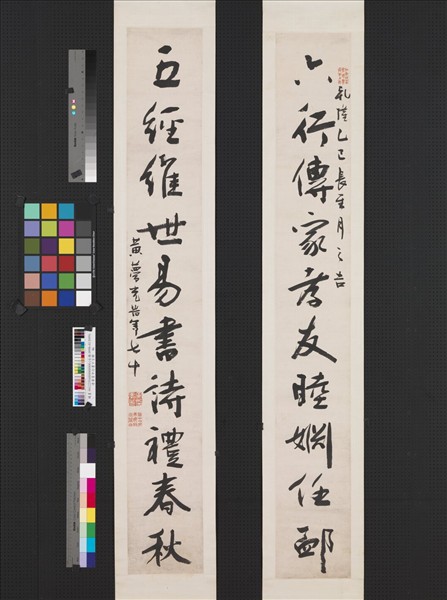 六行傳家孝友睦婣任卹
乾隆乙巳長至月之吉
五經維世易書詩禮春秋
黃夢旹年七十